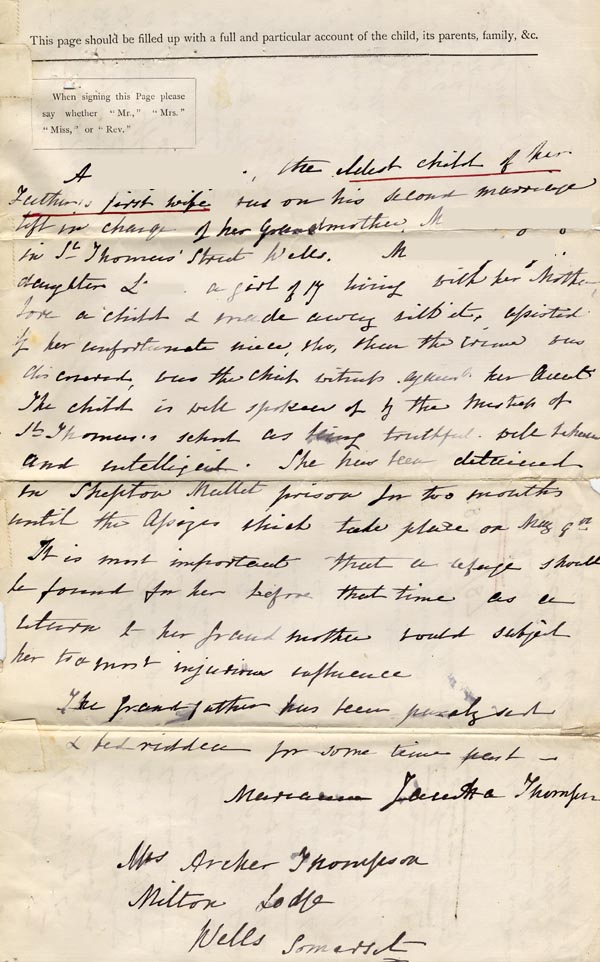 This page should be filled up with a full and particular account of the child, its parents, family, &c.
When signing this Page please
say whether "Mr.," "Mrs."
"Miss," or "Rev."
A , the eldest child of her
Father's first wife was on his second marriage
left in charge of her Grandmother, M
in St Thomas' Street Wells. M
daughter L a girl of 17 living with her Mother,
bore a child & made away with it, assisted
by her unfortunate niece, who, when the crime was
discovered, was the chief witness against her Aunt.
The child is well spoken of by the Mistress of
St Thomas's school as being truthful. well behaved
and intelligent. She has been detained
in Shepton Mallet prison for two months
until the Assizes which take place on May 9th
It is most important that a refuge should
be found for her before that time as a
return to her grand mother would subject
her to a most injurious influence
The grandfather has been paralysed
& bedridden for some time past –
Thompson
Mrs Archer Thompson
Milton Lodge
Wells Somerset